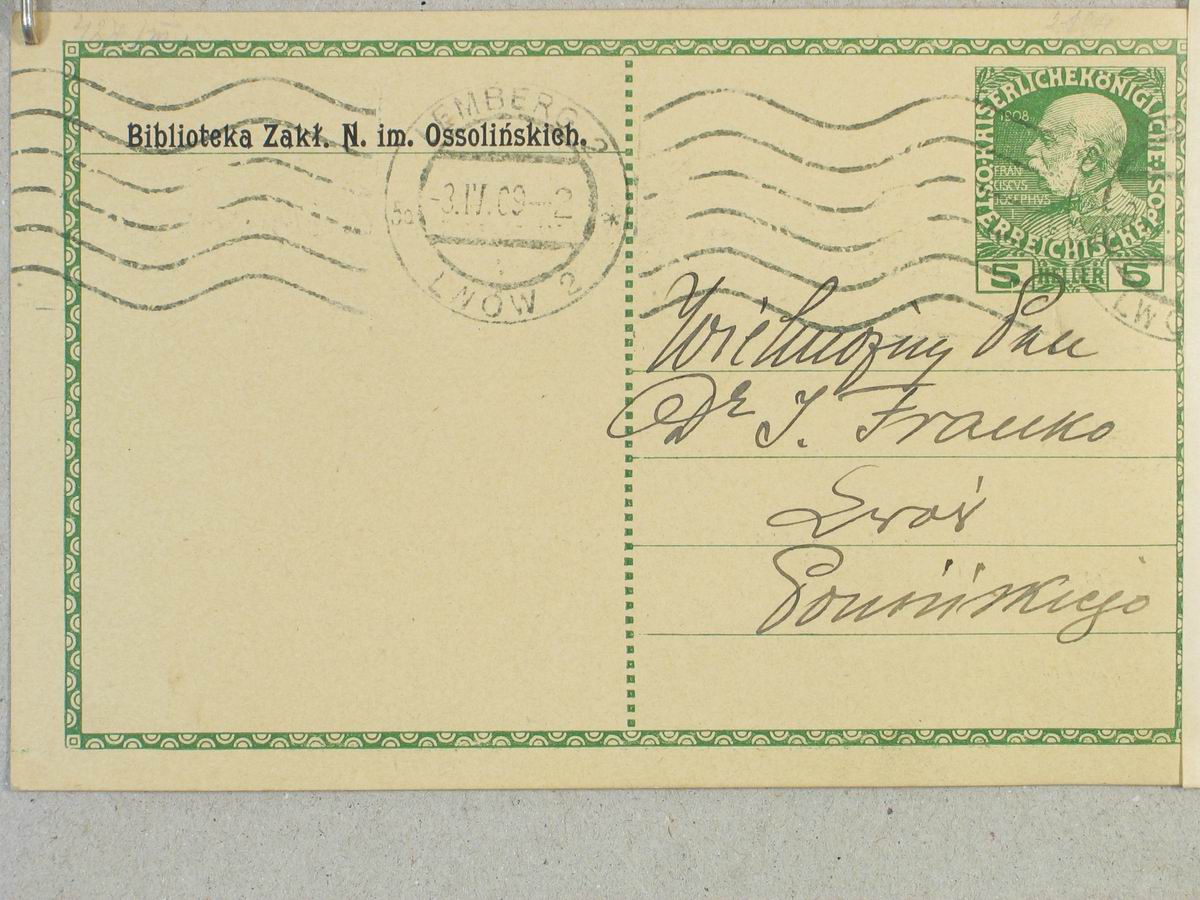 Biblioteka Zakł. N. im. Ossolińskich.
LEMBERG 2
-3.IV.09--2
LWÓW 2
KAISERLICHEKÖNIGLICHE
ÖSTERREICHISCHE POST
1908
FRAN
CISCVS
JOSEPHVS
I
5 HELLER 5
LWÓ
Wielmożny Pan
Dr I. Franko
Lwów
Ponińskiego